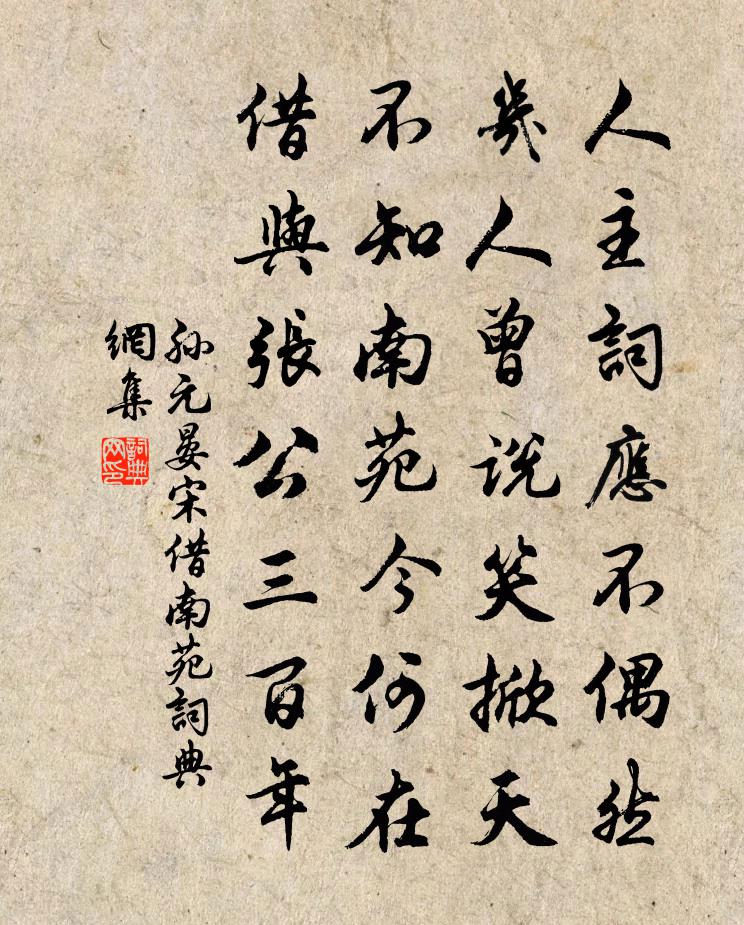 人主詞應不偶然
幾人曾説笑掀天
不知南苑今何在
借與張公三百年
孫元晏宋借南苑詞典
網集
詞典
网印